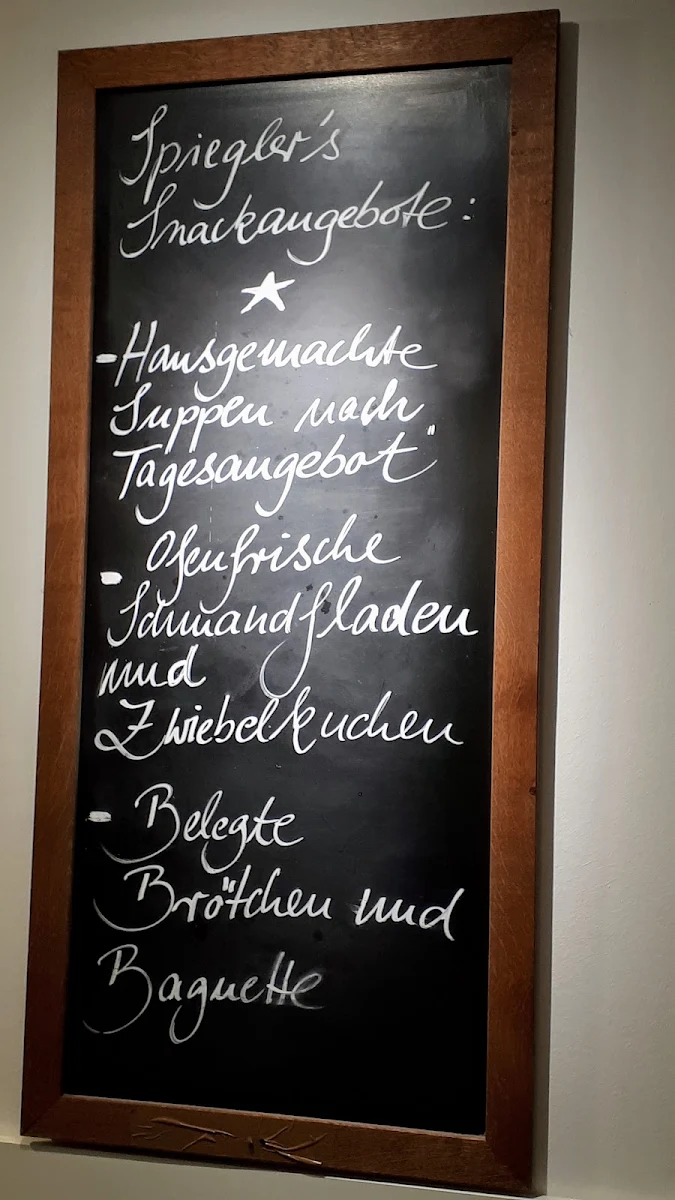 Spiegler's
Snackangebote:
-Hausgemachte
Suppen nach
Tagesangebot"
- Ofenfrische
Schmandfladen
und
Zwiebelkuchen
- Belegte
Brötchen und
Baguette